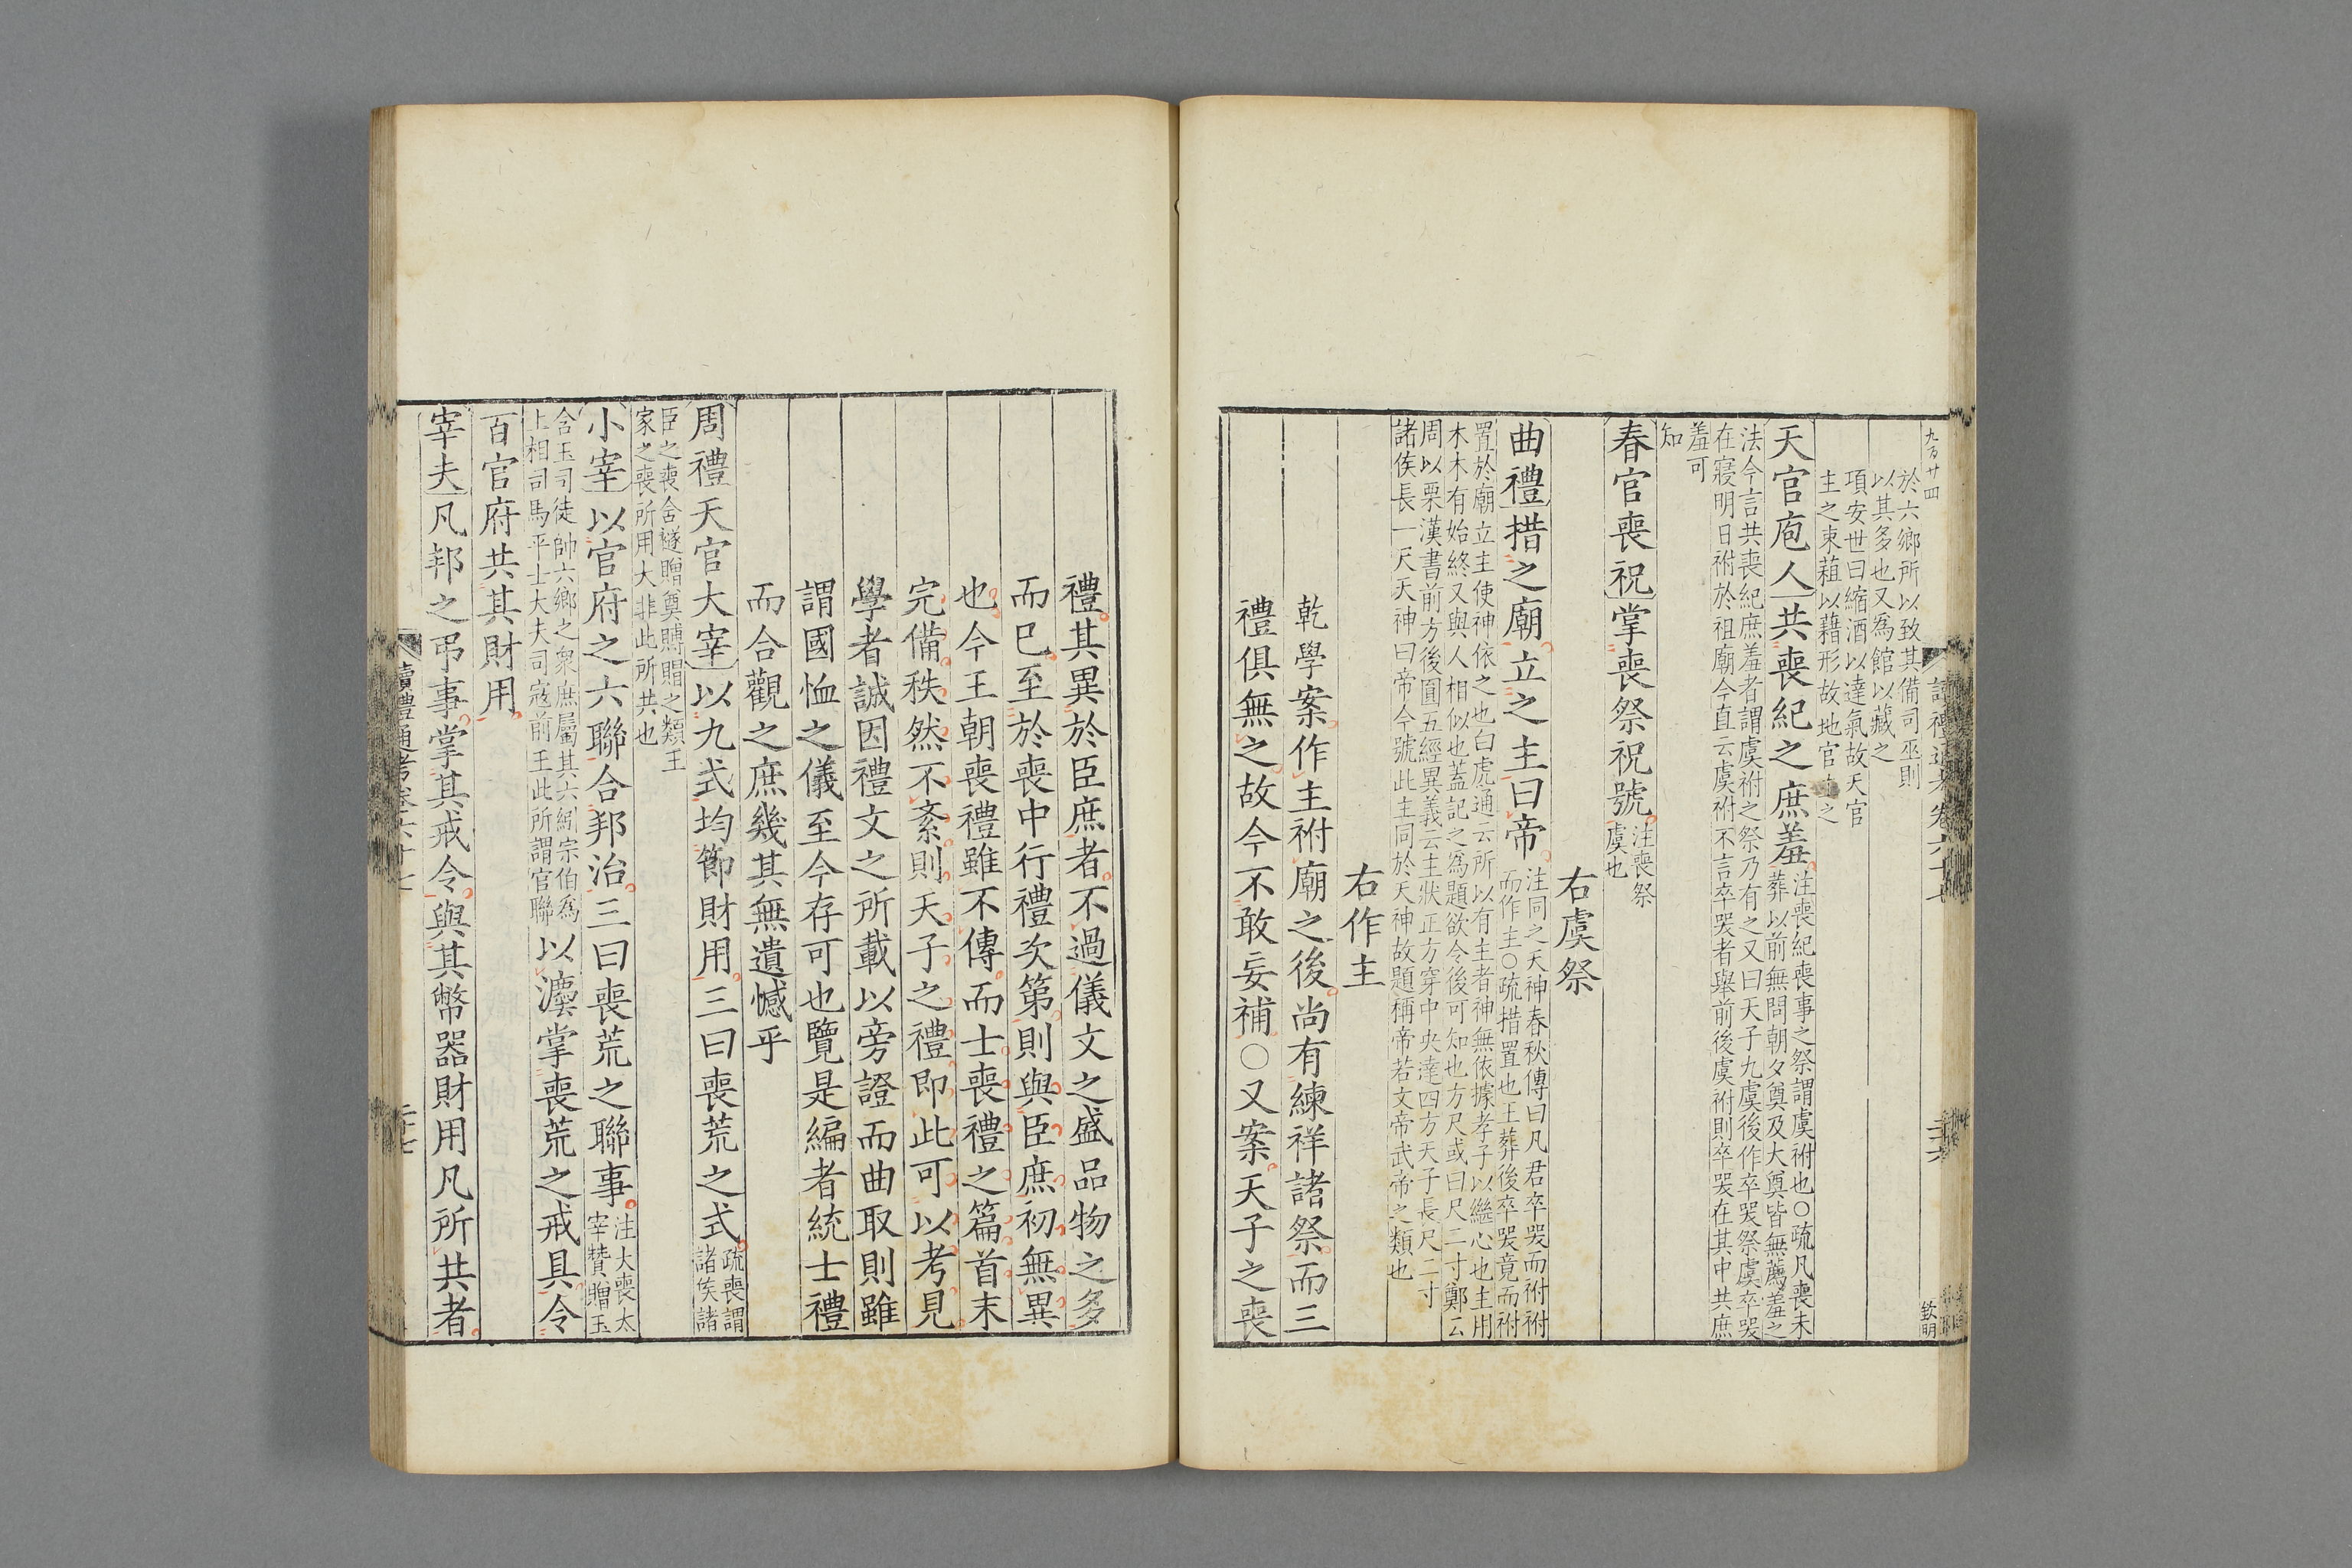 九百廿四
於六鄉所以致其備司巫則
以其多也又爲館以藏之
項安世曰縮酒以達氣故天官
主之束蒩以藉形故地官 之
天官庖人共喪紀之庶羞
注喪紀喪事之祭謂虞祔也○疏凡喪未
葬以前無問朝夕奠及大奠皆無薦羞之
法今言共喪紀庶羞者謂虞祔之祭乃有之又曰天子九虞後作卒哭祭虞卒哭
在寢明日祔於祖廟今直云虞祔不言卒哭者舉前後虞祔則卒哭在其中共庶
羞可
知
春官喪祝掌喪祭祝號
注喪祭
虞也
右虞祭
曲禮措之廟立之主曰帝
注同之天神春秋傳曰凡君卒哭而祔祔
而作主○疏措置也王葬後卒哭竟而祔
置於廟立主使神依之也白虎通云所以有主者神無依據孝子以繼心也主用
木木有始終又與人相似也蓋記之爲題欲令後可知也方尺或曰尺二寸鄭云
周以栗漢書前方後圓五經異義云主狀正方穿中央達四方天子長尺二寸
諸侯長一尺天神曰帝今號此主同於天神故題稱帝若文帝武帝之類也
右作主
乾學案作主祔廟之後尚有練祥諸祭而三
禮俱無之故今不敢妄補○又案天子之喪
讀禮通考卷六十七
二十六
欽明
禮其異於臣庶者不過儀文之盛品物之多
而巳至於喪中行禮次第則與臣庶初無異
也今王朝喪禮雖不傳而士喪禮之篇首末
完備秩然不紊則天子之禮即此可以考見
學者誠因禮文之所載以旁證而曲取則雖
謂國恤之儀至今存可也覽是編者統士禮
而合觀之庶幾其無遺憾乎
周禮天官大宰以九式均節財用三曰喪荒之式
疏喪謂
諸侯諸
臣之喪含襚贈奠賻賵之類王
家之喪所用大非此所共也
小宰以官府之六聯合邦治三曰喪荒之聯事
注大喪太
宰贊贈玉
含玉司徒帥六鄉之衆庶屬其六綍宗伯爲
上相司馬平士大夫司寇前王此所謂官聯
以灋掌喪荒之戒具令
百官府共其財用
宰夫凡邦之弔事掌其戒令與其幣器財用凡所共者
讀禮通考卷六十七
二十七